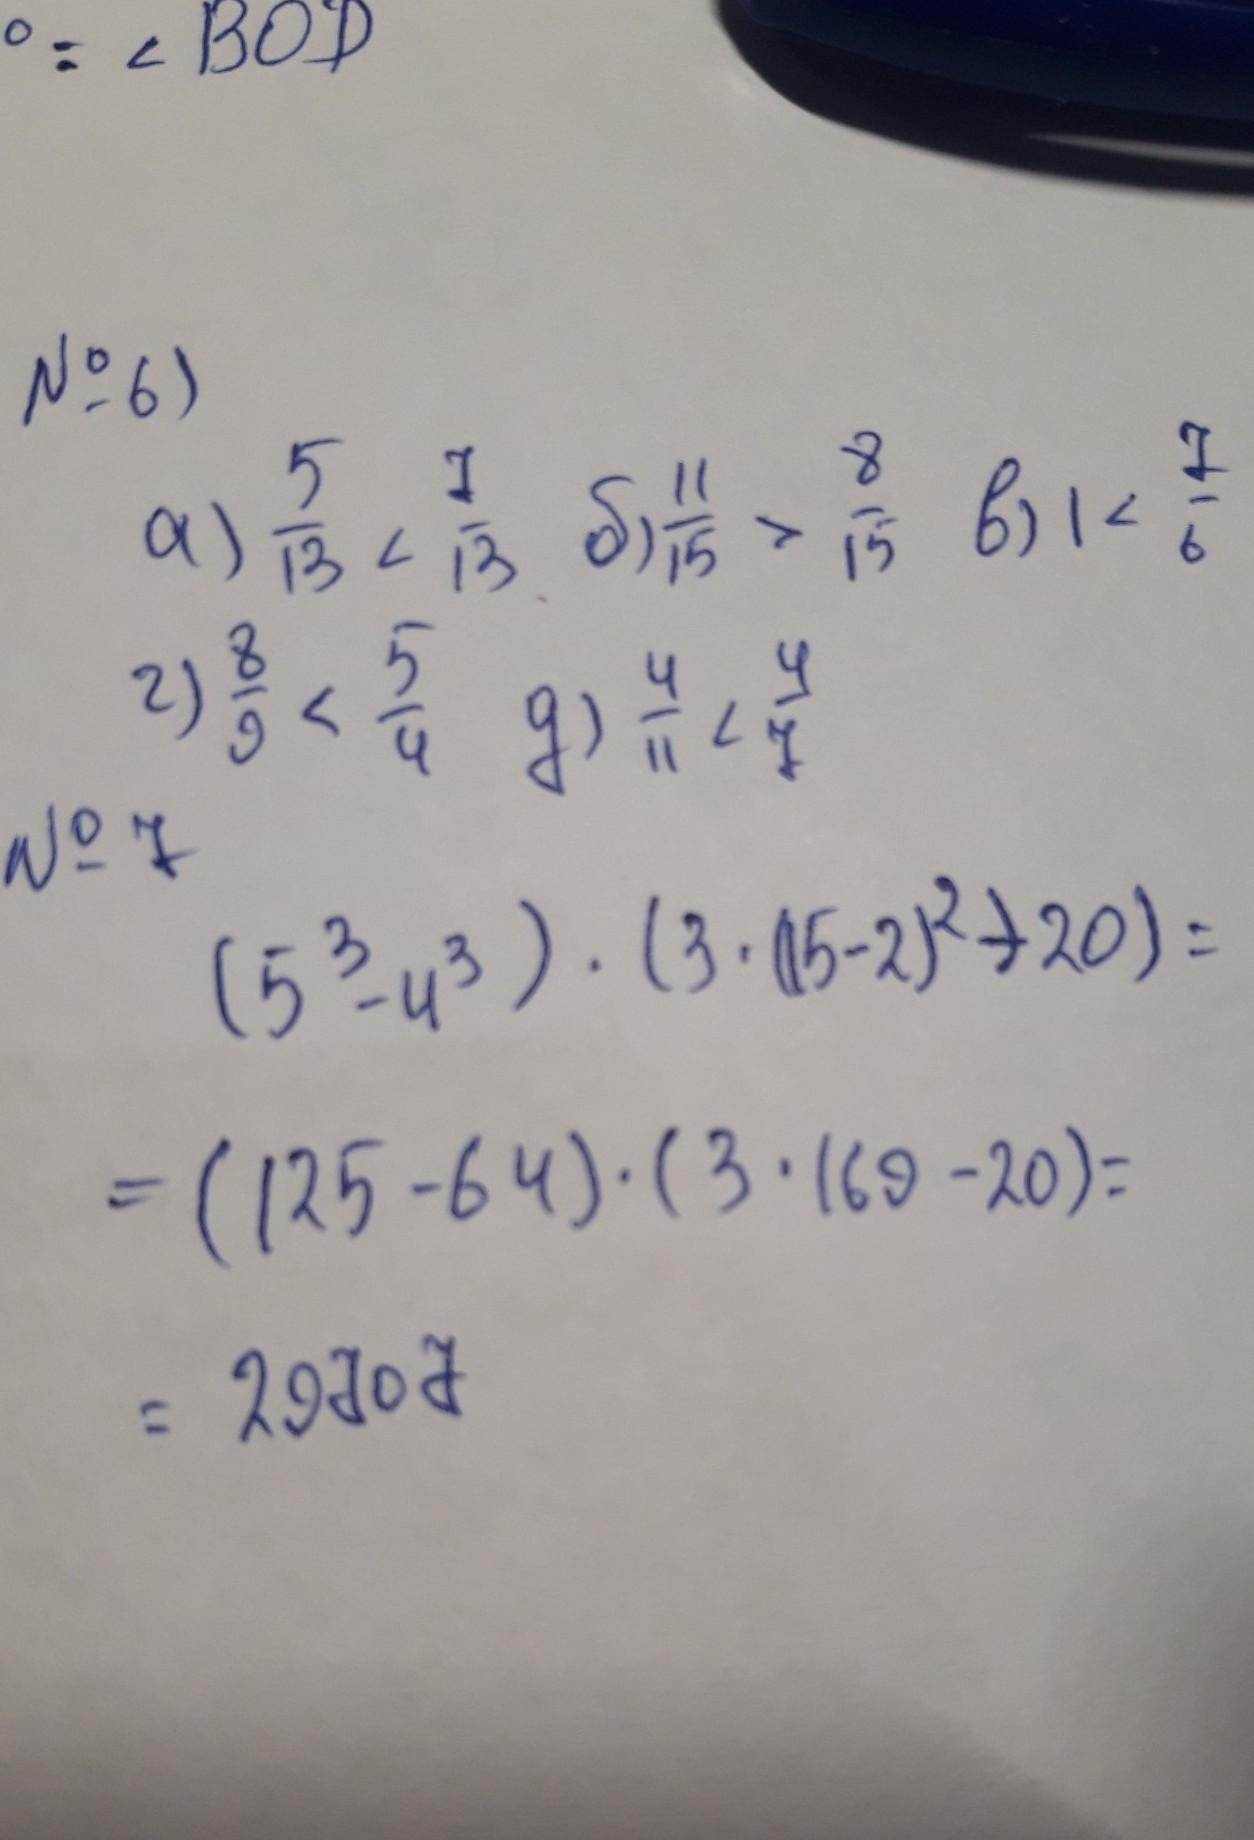 ° = < BOD
№6)
а) 5/13 < 7/13 б) 11/15 > 8/15 в) 1 < 7/6
г) 8/9 < 5/4 д) 4/11 < 4/7
№ 7
(5³-4³) · (3 · (15-2)²+20) =
= (125-64) · (3 · 169 -20) =
= 29707